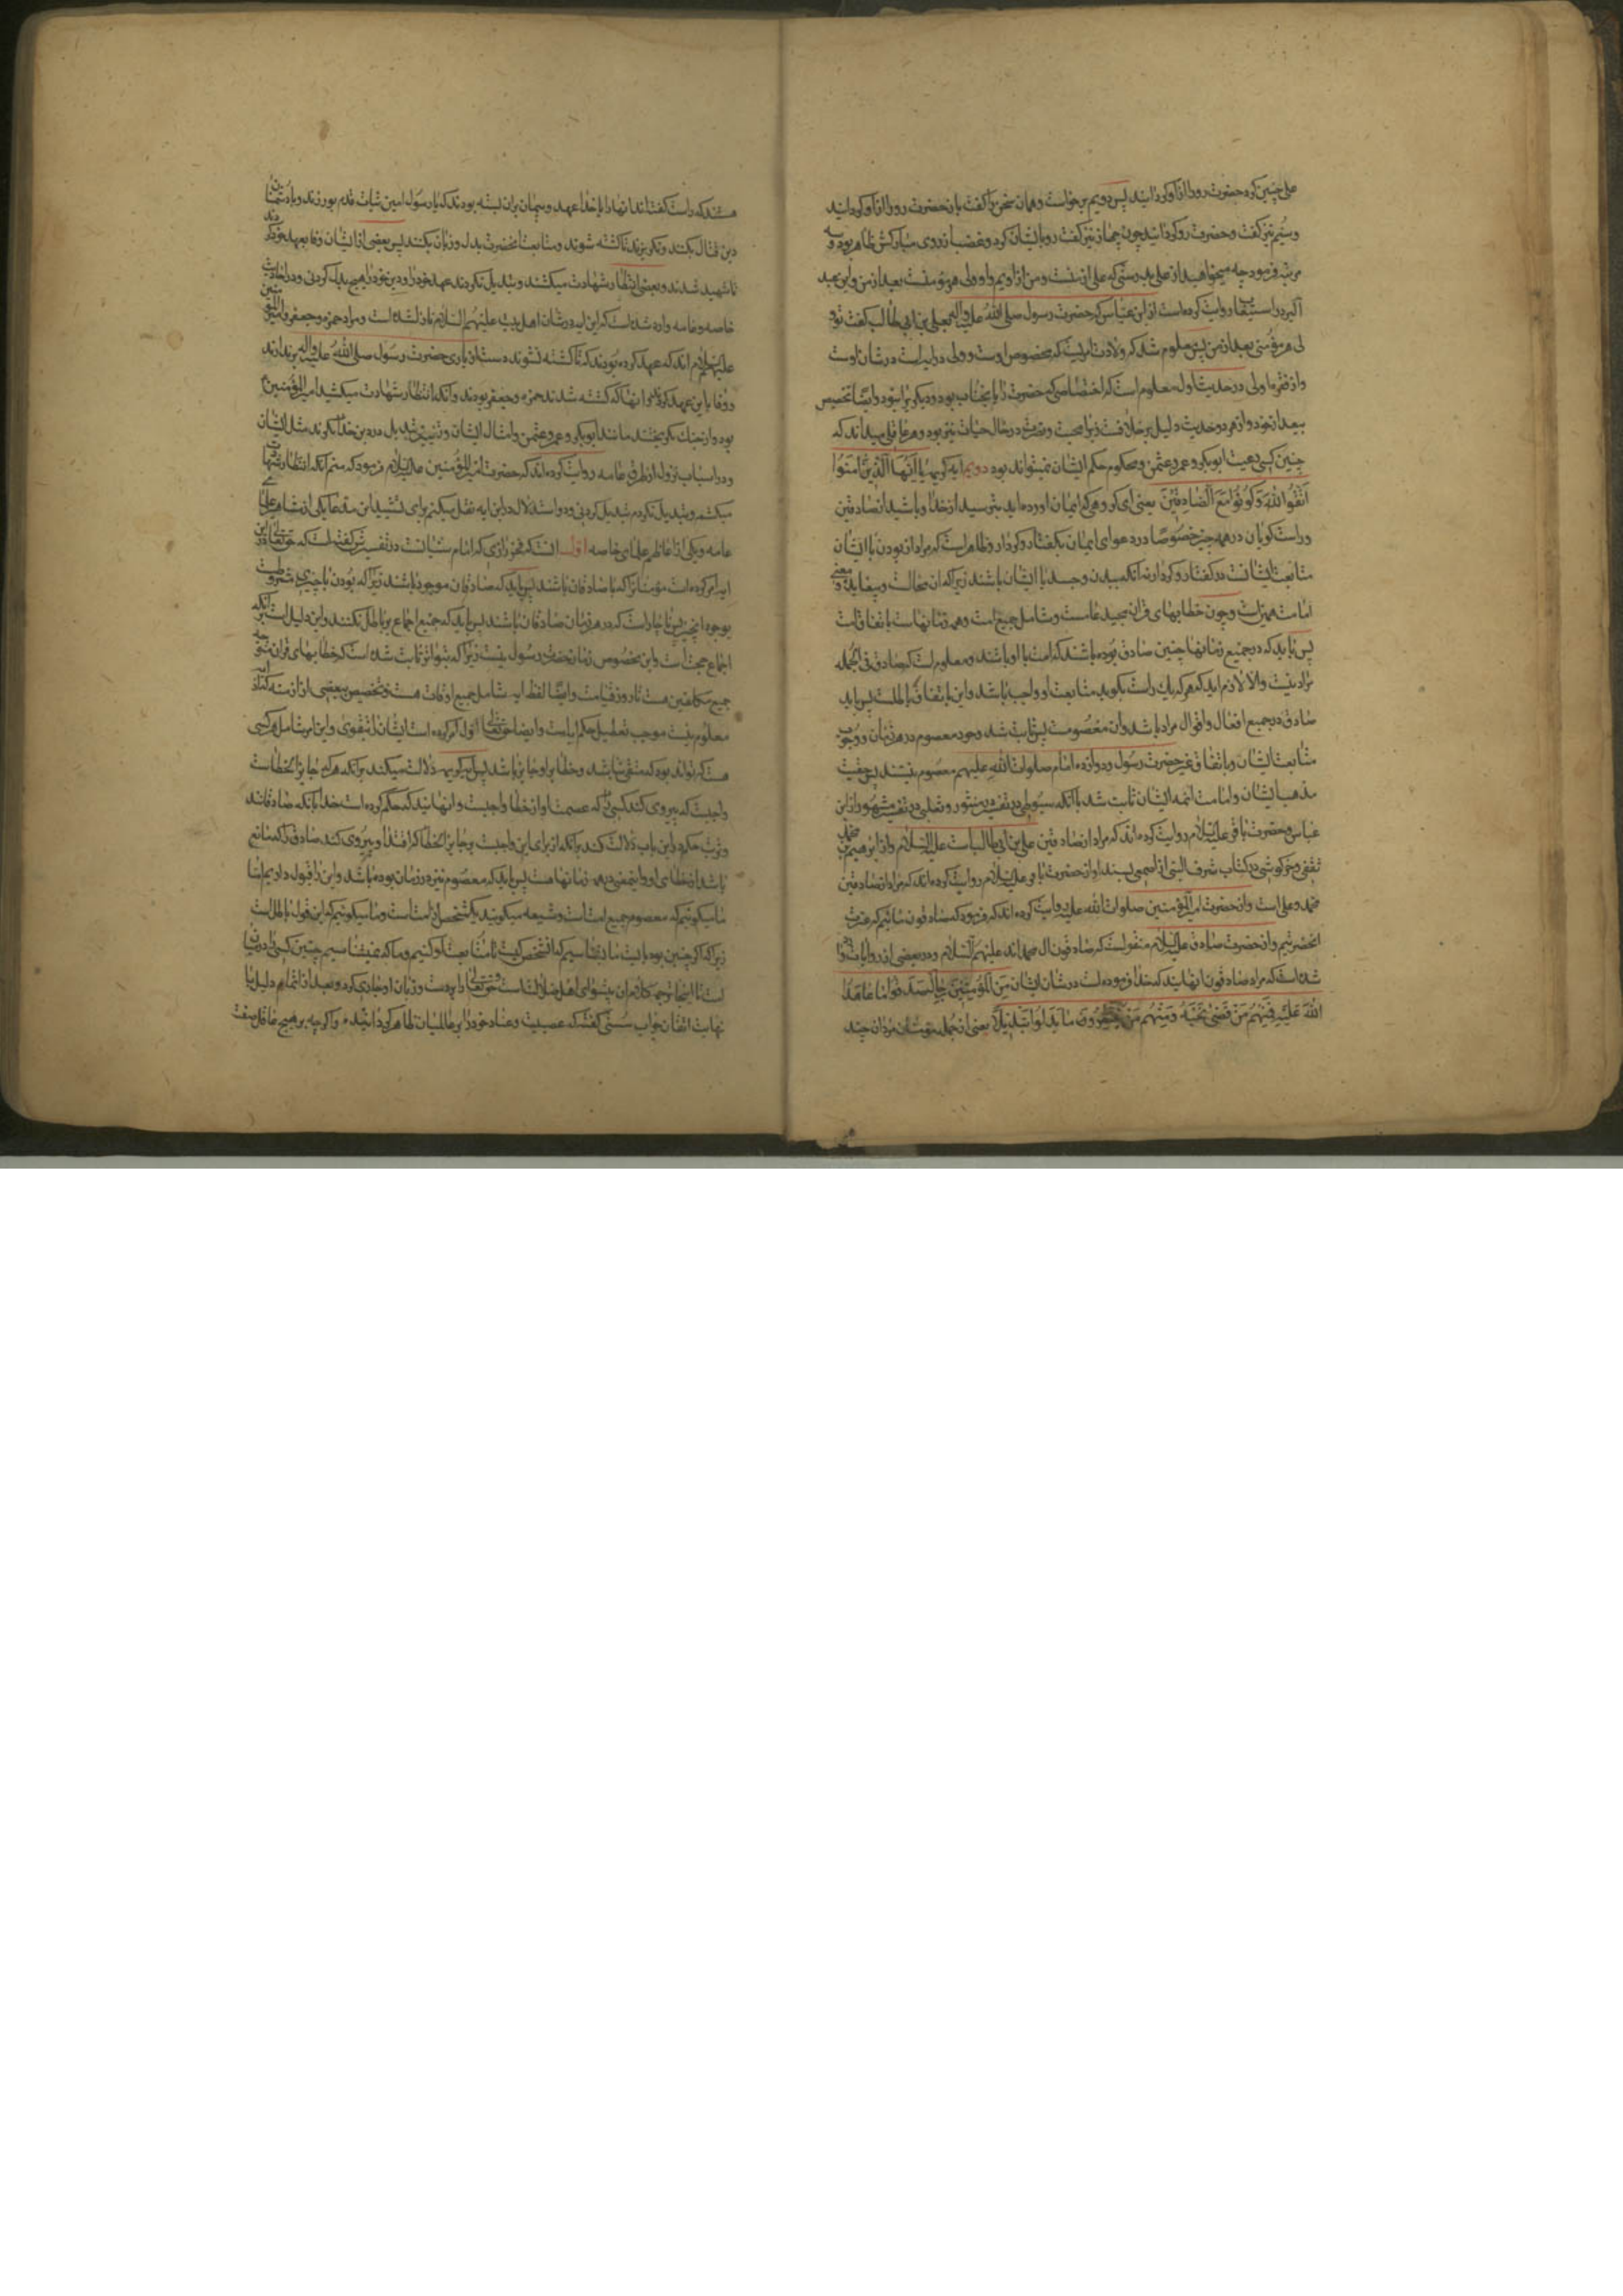 علی چنین کرد حضرت رو از او گردانید پس دویم برخواست و همان سخن را گفت باز حضرت رو از او گردانید
و سیم نیز گفت و حضرت رو گردانید چون چهارم نیز گفت رو بایشان کرد و غضب از روی مبارکش ظاهر بود و سه
مرتبه فرمود چه میخواهید از علی بدرستی که علی از منست و من از اویم و او ولی هر مؤمنست بعد از من و ابن عبد
البر در استیعاب روایت کرده است از ابن عباس که حضرت رسول صلی الله علیه واله بعلی بن ابی طالب گفت تو
ولی هر مؤمنی بعد از من پس معلوم شد که ولایت امریست که مخصوص اوست و ولی در این ایه است در شان اوست
و از فقره اولی در حدیث اول معلوم است که اختصاصی که حضرت را با انجناب بود و دیگریرا نبود و ایضا تخصیص
بعد از خود در هر دو حدیث دلیل بر خلافت زیرا محبت و نصرت در حال حیات نیز بود و هر عاقلی میداند که
چنین کسی رعیت ابوبکر و عمر و عثمن و محکوم حکم ایشان نمیتواند بود دویم ایه کریمه یا ایها الذین امنوا
اتقوا الله وکونوا مع الصادقین یعنی ای گروهی که ایمان اورده اید بترسید از خدا و باشید از صادقین
و راست گویان در همه چیز خصوصا در دعوای ایمان بگفتار و کردار و ظاهر است که مراد از بودن با ایشان
متابعت ایشانست در گفتار و کردار نه آنکه ببدن و جسد با ایشان باشند زیرا که ان محالست و بیفایده و معنی
امامت همین است و چون خطابهای قران مجید عامست و شامل جمیع امت و همه زمانهاست باتفاق امت
پس باید که در جمیع زمانها چنین صادقی بوده باشد که امت با او باشند و معلوم است که صادق فی الجمله
مراد نیست والا لازم اید که هر که یک راست بگوید متابعت او واجب باشد و این باتفاق باطلست پس باید
صادق در جمیع افعال و اقوال مراد باشد و ان معصومست پس ثابت شد وجود معصوم در هر زمان و وجوب
متابعت ایشان و باتفاق غیر حضرت رسول و دوازده امام صلوات الله علیهم معصوم نیستند پس حقیت
مذهب ایشان و امامت ائمه ایشان ثابت شد با آنکه سیوطی در تفسیر در منثور و ثعلبی در تفسیر مشهور از ابن
عباس و حضرت باقر علیه السلام روایت کرده اند که مراد از صادقین علی بن ابی طالب است علیه السلام و از ابرهیم بن محمد
ثقفی و خرکوشی در کتاب شرف النبی از اصمعی بسند او از حضرت باقر علیه السلام روایت کرده اند که مراد از صادقین
محمد و علی است و از حضرت امیر المؤمنین صلوات الله علیه روایت کرده اند که فرمود که صادقون مائیم که عترت
انحضرتیم و از حضرت صادق علیه السلام منقولست که صادقون ال محمد اند علیهم السلام و در بعضی از روایات وارد
شده است که مراد صادقون انهایند که خدا فرموده است در شان ایشان من المؤمنین رجال صدقوا ما عاهدوا
الله علیه فمنهم من قضی نحبه ومنهم من ینتظر وما بدلوا تبدیلا یعنی از جمله مؤمنان مردان چند
هستند که راست گفته اند انها را با خدا عهد و پیمان بران بسته بودند که با رسول امین ثبات قدم بورزند و با دشمنان
دین قتال بکنند و نگریزند تا کشته شوند و متابعت انحضرت بدل و زبان بکنند پس بعضی از ایشان وفا بعهد خود کردند
تا شهید شدند و بعضی انتظار شهادت میکشند و تبدیل نکردند عهد خود را و دین خود را هیچ بدل کردنی و در احادیث
خاصه و عامه وارد شده است که این ایه در شان اهل بیت علیهم السلام نازل شده است و مراد حمزه و جعفر و امیر المؤمنین
علیهم السلام اند که عهد کرده بودند که تا کشته نشوند دست از یاری حضرت رسول صلی الله علیه واله برندارند
و وفا باین عهد کردند و انها که کشته شدند حمزه و جعفر بودند و آنکه انتظار شهادت میکشید امیر المؤمنین
بود و از جنگ نگریختند مانند ابوبکر و عمر و عثمن و امثال ایشان و تغییر و تبدیل در دین خدا نکردند مثل ایشان
و در اسباب نزول از طرق عامه روایت کرده اند که حضرت امیر المؤمنین علیه السلام فرمود که منم آنکه انتظار شهادت
میکشم و تبدیل نکردم تبدیل کردنی و در استدلال در این ایه نقل میکنم برای تشیید این مدعا یکی از مشاهیر علمای
عامه و یکی از اعاظم علمای خاصه اول انست که فخر رازی که امام سنیانست در تفسیرش گفته است که حق تعالی در این
ایه امر کرده است مؤمنانرا که با صادقان باشند پس باید که صادقان موجود باشند زیرا که بودن با چیزی مشروطست
بوجود انچیز پس ناچار است که در هر زمان صادقان باشند پس باید که جمیع اجماع بر باطل نکنند و این دلیل است بر آنکه
اجماع حجت است و این مخصوص زمان حضرت رسول نیست زیرا که بتواتر ثابت شده است که خطابهای قران متوجه
جمیع مکلفین هست تا روز قیامت و ایضا لفظ ایه شامل جمیع اوقات هست و تخصیص ببعضی از ازمنه که در ایه
معلوم نیست موجب تعطیل حکم ایاست و ایضا حق تعالی اول امر کرده است ایشانرا بتقوی و این امر شامل هر کسی
هست که تواند بود که متقی نباشد و خطا بر او جایز باشد پس ایه کریمه دلالت میکند بر آنکه هر که جایز الخطاست
واجبست که پیروی کند کسی را که عصمت او از خطا واجبست و انهایند که حکم کرده است خدا بآنکه صادقانند
و ترتب حکم در این باب دلالت کند بر آنکه از برای این واجبست بر جایز الخطا که اقتدا و پیروی کند صادق را که مانع
باشد از خطای او و اینمعنی در همه زمانها هست پس باید که معصوم نیز در زمان بوده باشد و این را قبول داریم اما
ما میگوئیم که معصوم جمیع امت است و شیعه میگویند یکشخص از امت است و ما میگوئیم که این قول باطل است
زیرا که اگر چنین بود بایست ما بشناسیم که انشخص کیست تا متابعت او کنیم و ما که نمیشناسیم چنین کسی را در میان
امت تا اینجا ترجمه کلام ان پیشوای اهل ضلالتست و حق تعالی
نهایت اتقان جواب سستی گفته که عصبیت و عناد خود را بر عالمیان ظاهر گردانیده و اگر چه بر هیچ عاقل منصف